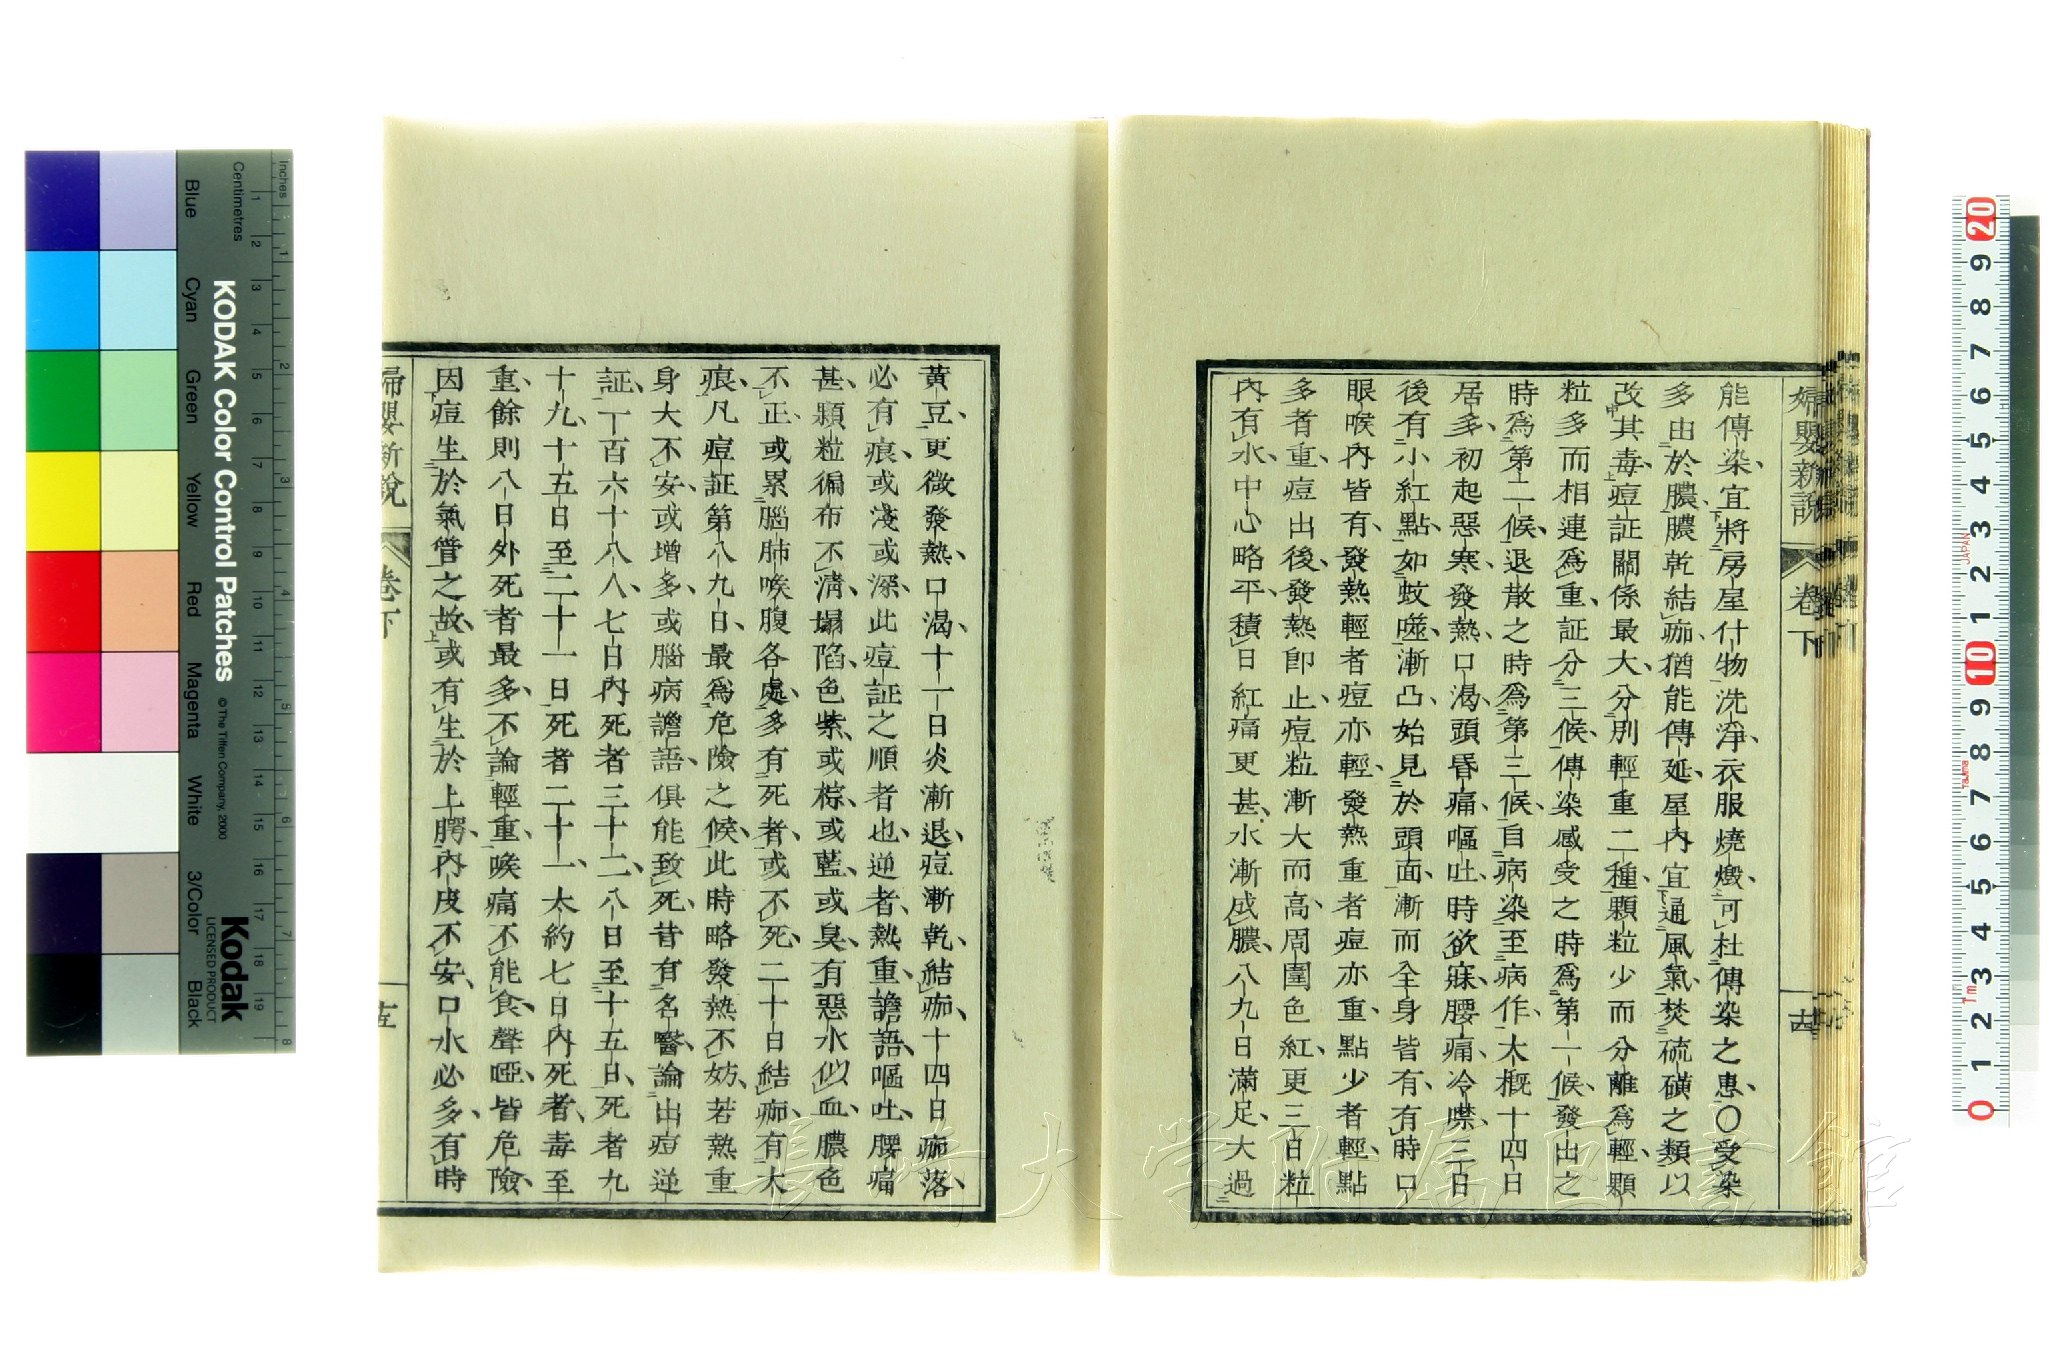 婦嬰新説 卷下 十四
能傳染、宜將房屋什物洗淨、衣服燒燬、可杜傳染之患、〇受染
多由於膿、膿乾結痂、猶能傳延、屋內宜通風氣、焚硫磺之類、以
改其毒、痘証關係最大、分別輕重二種、顆粒少而分離爲輕、顆
粒多而相連爲重、証分三候、傳染感受之時爲第一候、發出之
時爲第二候、退散之時爲第三候、自病染至病作、大槪十四日
居多、初起惡寒、發熱口渴、頭昏痛、嘔吐、時欲寐、腰痛、冷噤、三日
後有小紅點、如蚊噬、漸凸、始見於頭面、漸而全身皆有、有時口
眼喉內皆有、發熱輕者痘亦輕、發熱重者痘亦重、點少者輕、點
多者重、痘出後、發熱卽止、痘粒漸大而高、周圍色紅、更三日粒
內有水、中心略平、積日紅痛更甚、水漸成膿、八九日滿足、大過
黃豆、更微發熱、口渴、十一日炎漸退、痘漸乾、結痂、十四日痂落、
必有痕、或淺或深、此痘証之順者也、逆者熱重、譫語、嘔吐、腰痛
甚、顆粒徧布、不淸、塌陷、色紫、或棕、或藍、或臭、有惡水似血、膿色
不正、或累腦肺喉腹各處、多有死者、或不死、二十日結痂、有大
痕、凡痘証第八九日、最爲危險之候、此時略發熱不妨、若熱重
身大不安、或增多、或腦病譫語、俱能致死、昔有名醫、論出痘逆
証、一百六十八人、七日內死者三十二、八日至十五日、死者九
十九、十五日至二十一日、死者二十一、大約七日內死者、毒至
重、餘則八日外死者最多、不論輕重、喉痛不能食、聲啞、皆危險、
因痘生於氣管之故、或有生於上腭、內皮不安、口水必多、有時
婦嬰新說 卷下 十五
KODAK Color Control Patches
©The Tiffen Company, 2000
Kodak
LICENSED PRODUCT
Inches
Centimetres
Blue
Cyan
Green
Yellow
Red
Magenta
White
3/Color
Black
長崎大学附属図書館
JAPAN